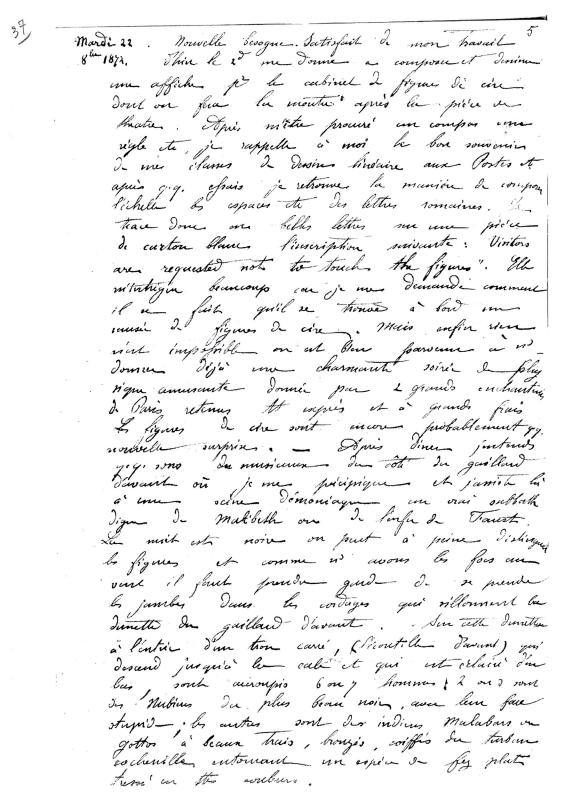 37
5
Mardi 22 8bre 1872. Nouvelle besogne. Satisfait de mon travail
hier le 2d me donne a composer et dessiner
une affiche pr le cabinet de figures de cire
dont on fera la montre après la pièce de
théatre. Après m'être procuré un compas une
règle etc, je rappelle à moi le bon souvenir
de mes classes de dessin linéaire aux Postes et
après q.q. essais je retrouve la manière de composer
l'échelle les espaces etc des lettres romaines. Je
trace donc en belles lettres sur une pièce
de carton blanc l'inscription suivante : Visitors
are requested not to touch the figures". Elle
m'intrigue beaucoup car je me demande comment
il se fait qu'il se trouve à bord un
musée de figures de cire. Mais enfin rien
n'est impossible on est bien parvenu à ns
donner déjà une charmante soirée de phy
sique amusante donnée par 2 grands enchanteurs
de Paris retenus tt exprès et à grands frais
Les figures de cire sont encore probablement q.q.
nouvelle surprise. — Après diner j'entends
q.q. sons de musique du côté du gaillard
d'avant où je me précipite et j'assiste là
à une scène démoniaque un vrai sabbath
digne de Makbeth ou de l'enfer de Faust.
La nuit est noire on peut à peine distinguer
les figures et comme ns avons les feux au
vent il faut prendre garde de se prendre
les jambes dans les cordages qui sillonnent la
dunette du gaillard d'avant. Sur cette dunette
à l'entrée d'un trou carré, (l'écoutille d'avant) qui
descend jusqu'à la cale et qui est éclairé d'en
bas, sont accroupis 6 ou 7 hommes ; 2 ou 3 sont
des Nubiens du plus beau noir, avec leur face
stupide, les autres sont des indiens Malabars ou
à beaux traits, bronzés, coiffés du turban
entourant un espèce de fez plat
tressé en ttes couleurs.